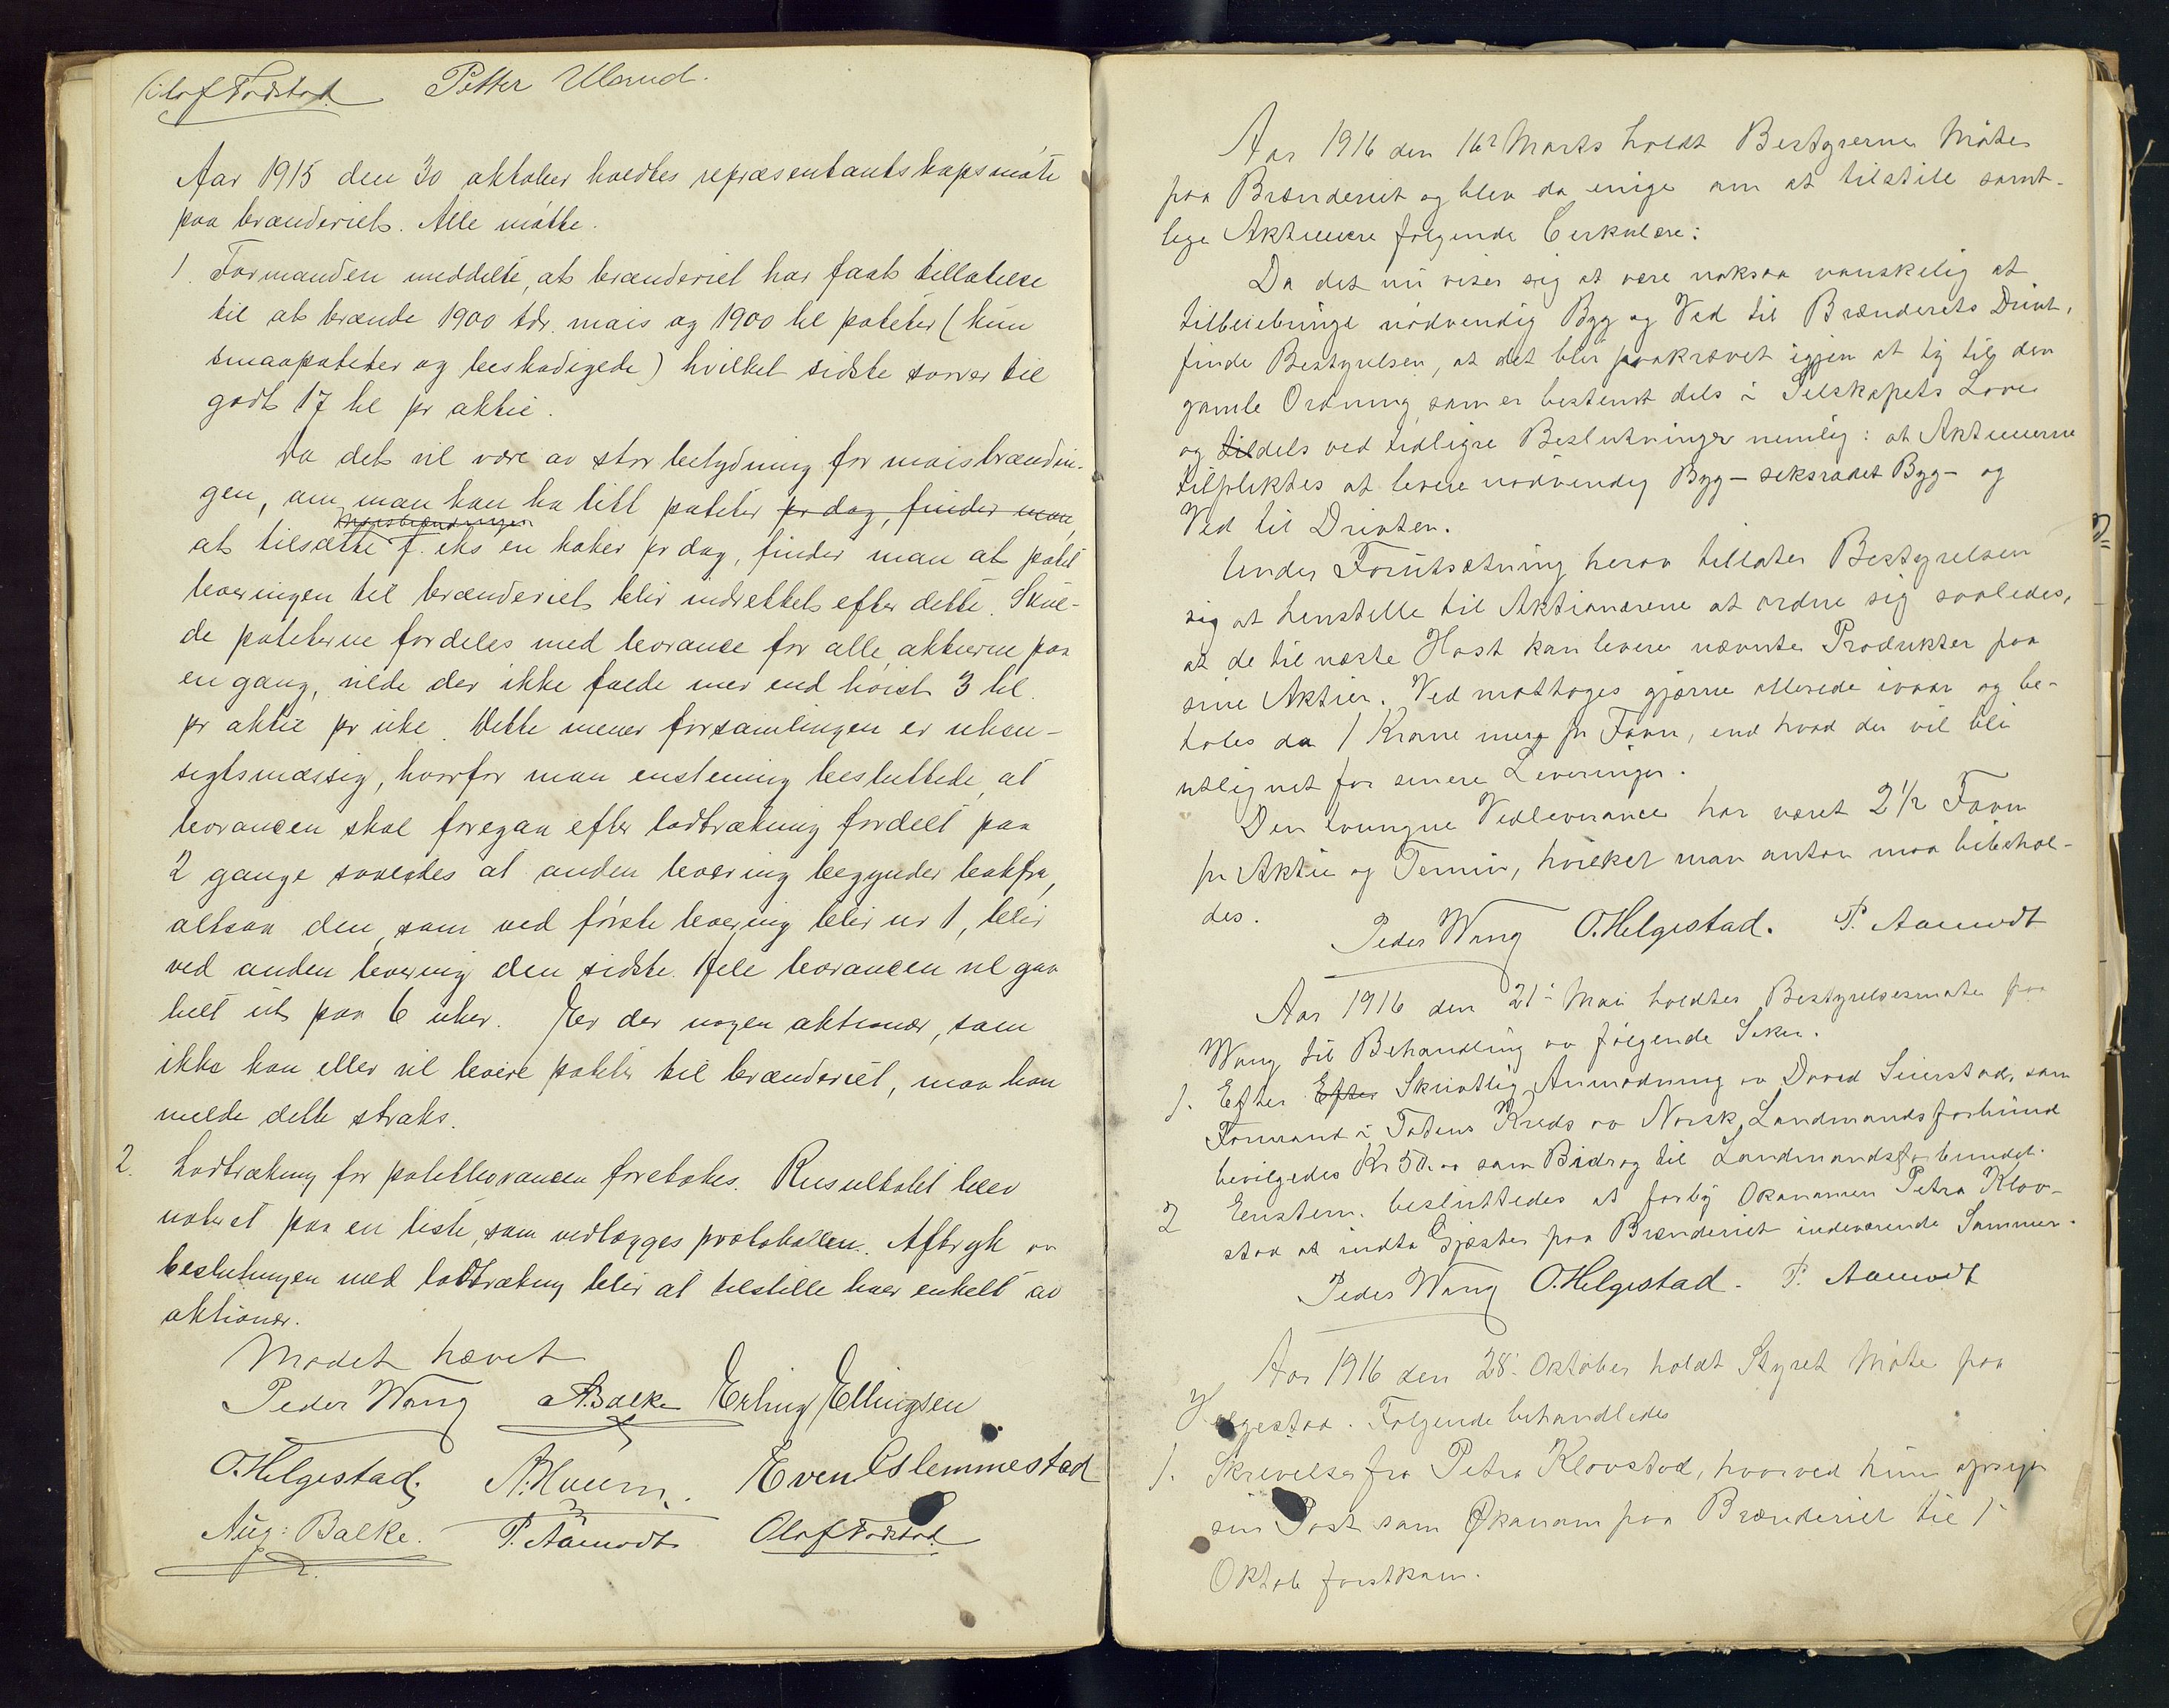 Olaf Fodstad Petter Ulsrud.
Aar 1915 den 30 oktober holdtes repræsentantskapsmøte
paa brænderiet. Alle møtte.
1. Formanden meddelte, at brænderiet har faat tillatelse
til at brænde 1900 tdr. mais og 1900 hl poteter (kun
smaapoteter og beskadigede) hvilket sidste svarer til
godt 17 hl pr aktie.
Da det vil være av stor betydning for maisbrændin-
gen, om man kan ha litt poteter pr dag, finder man,
maisbrændningen
at tilsætte f. eks en koker pr dag, finder man at potet
leveringen til brænderiet blir indrettet efter dette. Skul-
de poteterne fordeles med leverance for alle aktierne paa
en gang, vilde der ikke falde mer end høist 3 hl.
pr aktie pr uke. Dette mener forsamlingen er uhen-
sigtsmæssig, hvorfor man enstemmig besluttede, at
leverancen skal foregaa efter lodtrækning fordelt paa
2 gange saaledes at anden levering begynder bakfra,
altsaa den, som ved første levering blir nr 1, blir
ved anden levering den sidste. Hele leverancen vil gaa
helt ut paa 6 uker. Er der nogen aktionær, som
ikke kan eller vil levere poteter til brænderiet, maa han
melde dette straks.
2. Lodtrækning for potetleverancen foretokes. Resultatet blev
notert paa en liste, som vedlægges protokollen. Aftryk av
beslutningen med lodtrækning blir at tilstille hver enkelt av
aktionær.
Mødet hævet
Peder Wang A. Balke Erling Ellingsen
O. Helgestad. A. Huun. Even Eslemmestad
Aug: Balke. P. Aamodt Olaf Fodstad
Aar 1916 den 16de Marts holdt Bestyrerne Møte
paa Brænderiet og blev da enige om at tilstille samt-
lige Aktieeiere følgende Cirkulære:
Da det nu viser sig at være noksaa vanskelig at
tilveiebringe nødvendig Byg og Ved til Brænderiets Drivt,
finde Bestyrelsen, at det blir paakrævet igjen at ty til den
gamle Ordning som er bestemt dels i Selskapets Love
og tildels ved tidligre Beslutninger nemlig: at Aktieeierne
tilpliktes at levere nødvendig Byg – seksradet Byg – og
Ved til Drivten.
Under Forutsætning herav tillater Bestyrelsen
sig at henstille til Aktionærene at ordne sig saaledes,
at de til næste Høst kan levere nævnte Produkter paa
sine Aktier. Ved mottages gjærne allerede ivaar og be-
tales da 1 Krone mer pr Favn, end hvad der vil bli
utlignet for senere Leveringer.
Den tvungne Vedleverance har været 2 1/2 Favn
pr Aktie og Termin, hvilket man antar maa bibehol-
des.
Peder Wang O. Helgestad. P. Aamodt
Aar 1916 den 21' Mai holdtes Bestyrelsesmøte paa
Wang til Behandling av følgende Saker.
1. Efter Efter Skrivtlig Anmodning av David Seierstad, som
Formand i Totens Kreds av Norsk Landmandsforbund
bevilgedes Kr 50.00 som Bidrag til Landmandsforbundet.
2 Enstem. besluttedes at forby Økonomen Petra Klov-
stad at indta Gjæster paa Brænderiet indeværende Sommer.
Peder Wang O. Helgestad. P. Aamodt
Aar 1916 den 28' Oktober holdt Styret Møte paa
Helgestad. Følgende behandledes
1. Skrivelse fra Petra Klovstad, hvorved hun opsiger
sin Post som Økonom paa Brænderiet til 1
Oktob førstkom.